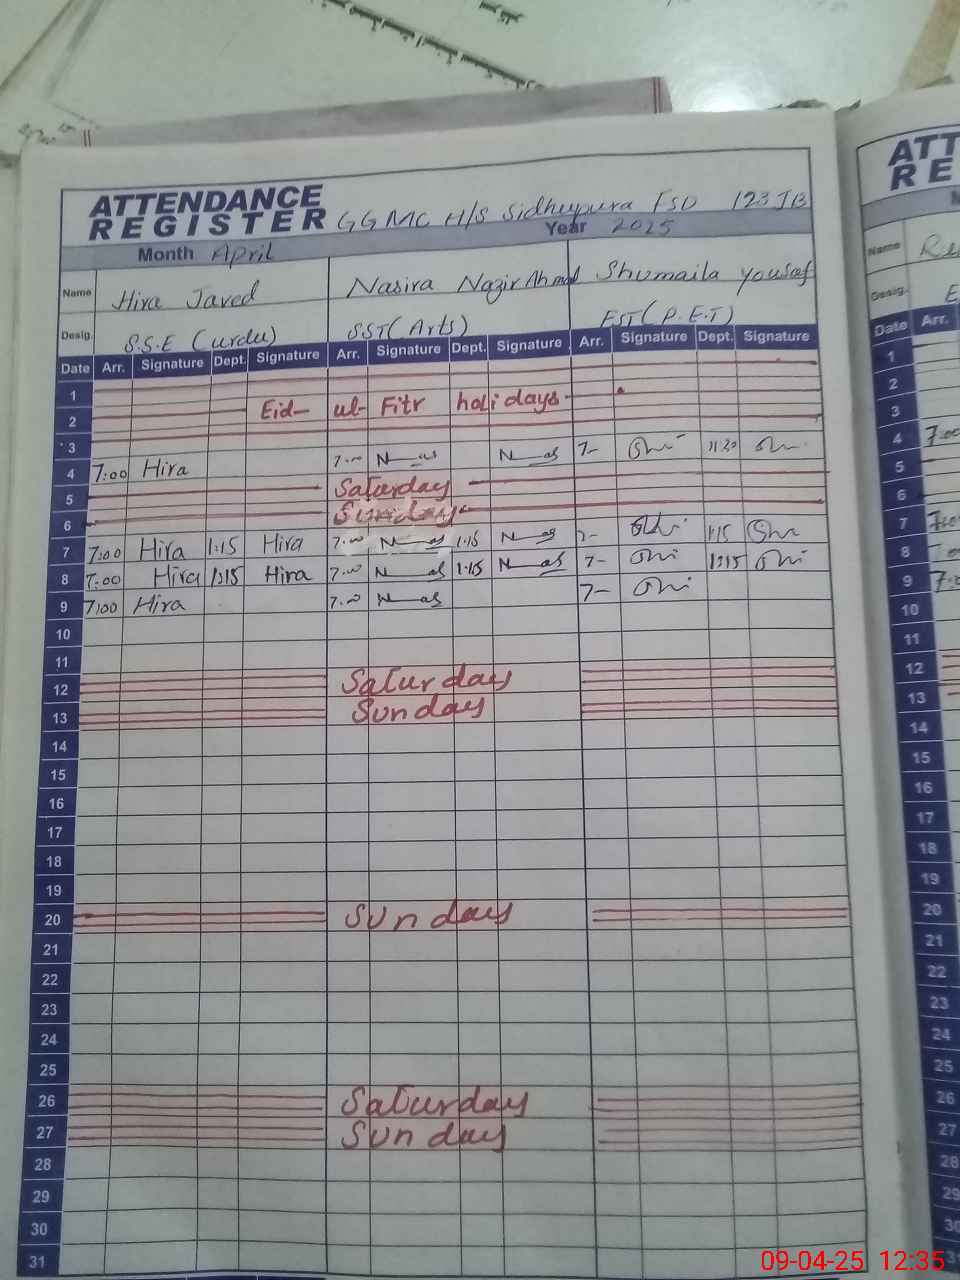 ATTENDANCE REGISTER GGMC H/S Sidhupura FSD 123JB
Month April Year 2025
Name Hira Javed Nasira Nazir Ahmad Shumaila yousaf
Desig. S.S.E (urdu) SST(Arts) EST(P.E.T)
Date Arr. Signature Dept. Signature Arr. Signature Dept. Signature Arr. Signature Dept. Signature
1
2 Eid- ul- Fitr holidays
3
4 7:00 Hira 7.00 7- 11:20
5 Saturday
6 Sunday
7 7:00 Hira 1:15 Hira 7.00 1:15 7- 1:15
8 7:00 Hira 1:15 Hira 7.00 1:15 7- 1:15
9 7:00 Hira 7.00 7-
10
11
12 Saturday
13 Sunday
14
15
16
17
18
19
20 Sunday
21
22
23
24
25
26 Saturday
27 Sunday
28
29
30
31
ATT
RE
Name
Desig.
Date Arr.
1
2
3
4 7:00
5
6
7
8
9
10
11
12
13
14
15
16
17
18
19
20
21
22
23
24
25
26
27
28
29
30
31
09-04-25 12:35